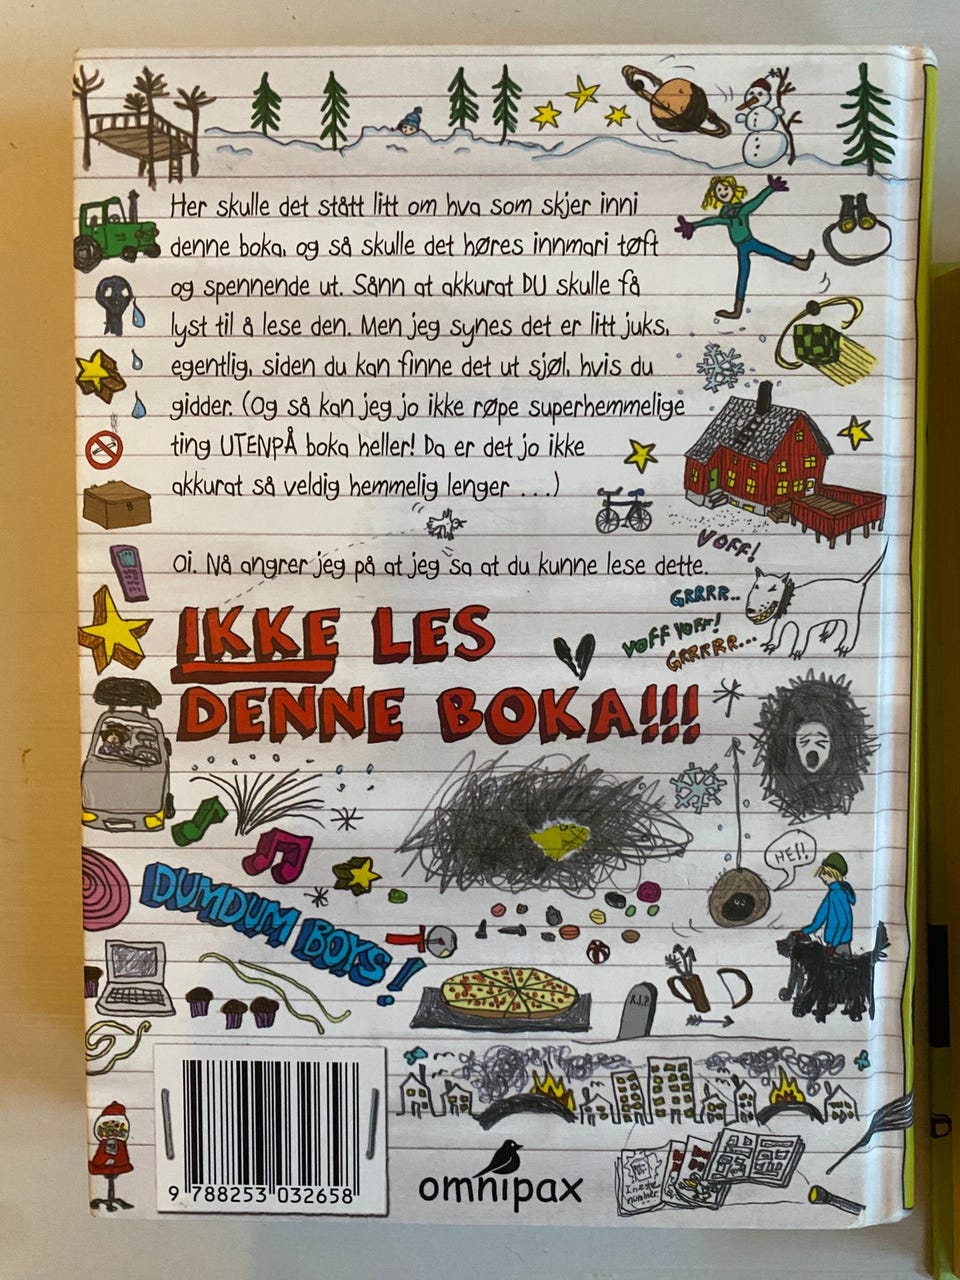 Her skulle det stått litt om hva som skjer inni
denne boka, og så skulle det høres innmari tøft
og spennende ut. Sånn at akkurat DU skulle få
lyst til å lese den. Men jeg synes det er litt juks,
egentlig, siden du kan finne det ut sjøl, hvis du
gidder. (Og så kan jeg jo ikke røpe superhemmelige
ting UTENPÅ boka heller! Da er det jo ikke
akkurat så veldig hemmelig lenger ...)
VOFF!
Oi. Nå angrer jeg på at jeg sa at du kunne lese dette.
GRRRR..
VOFF VOFF!
GRRRRR...
IKKE LES
DENNE BOKA!!!
HEI!
DUMDUM BOYS!
R.I.P.
9 788253 032658
omnipax
I neste
nummer